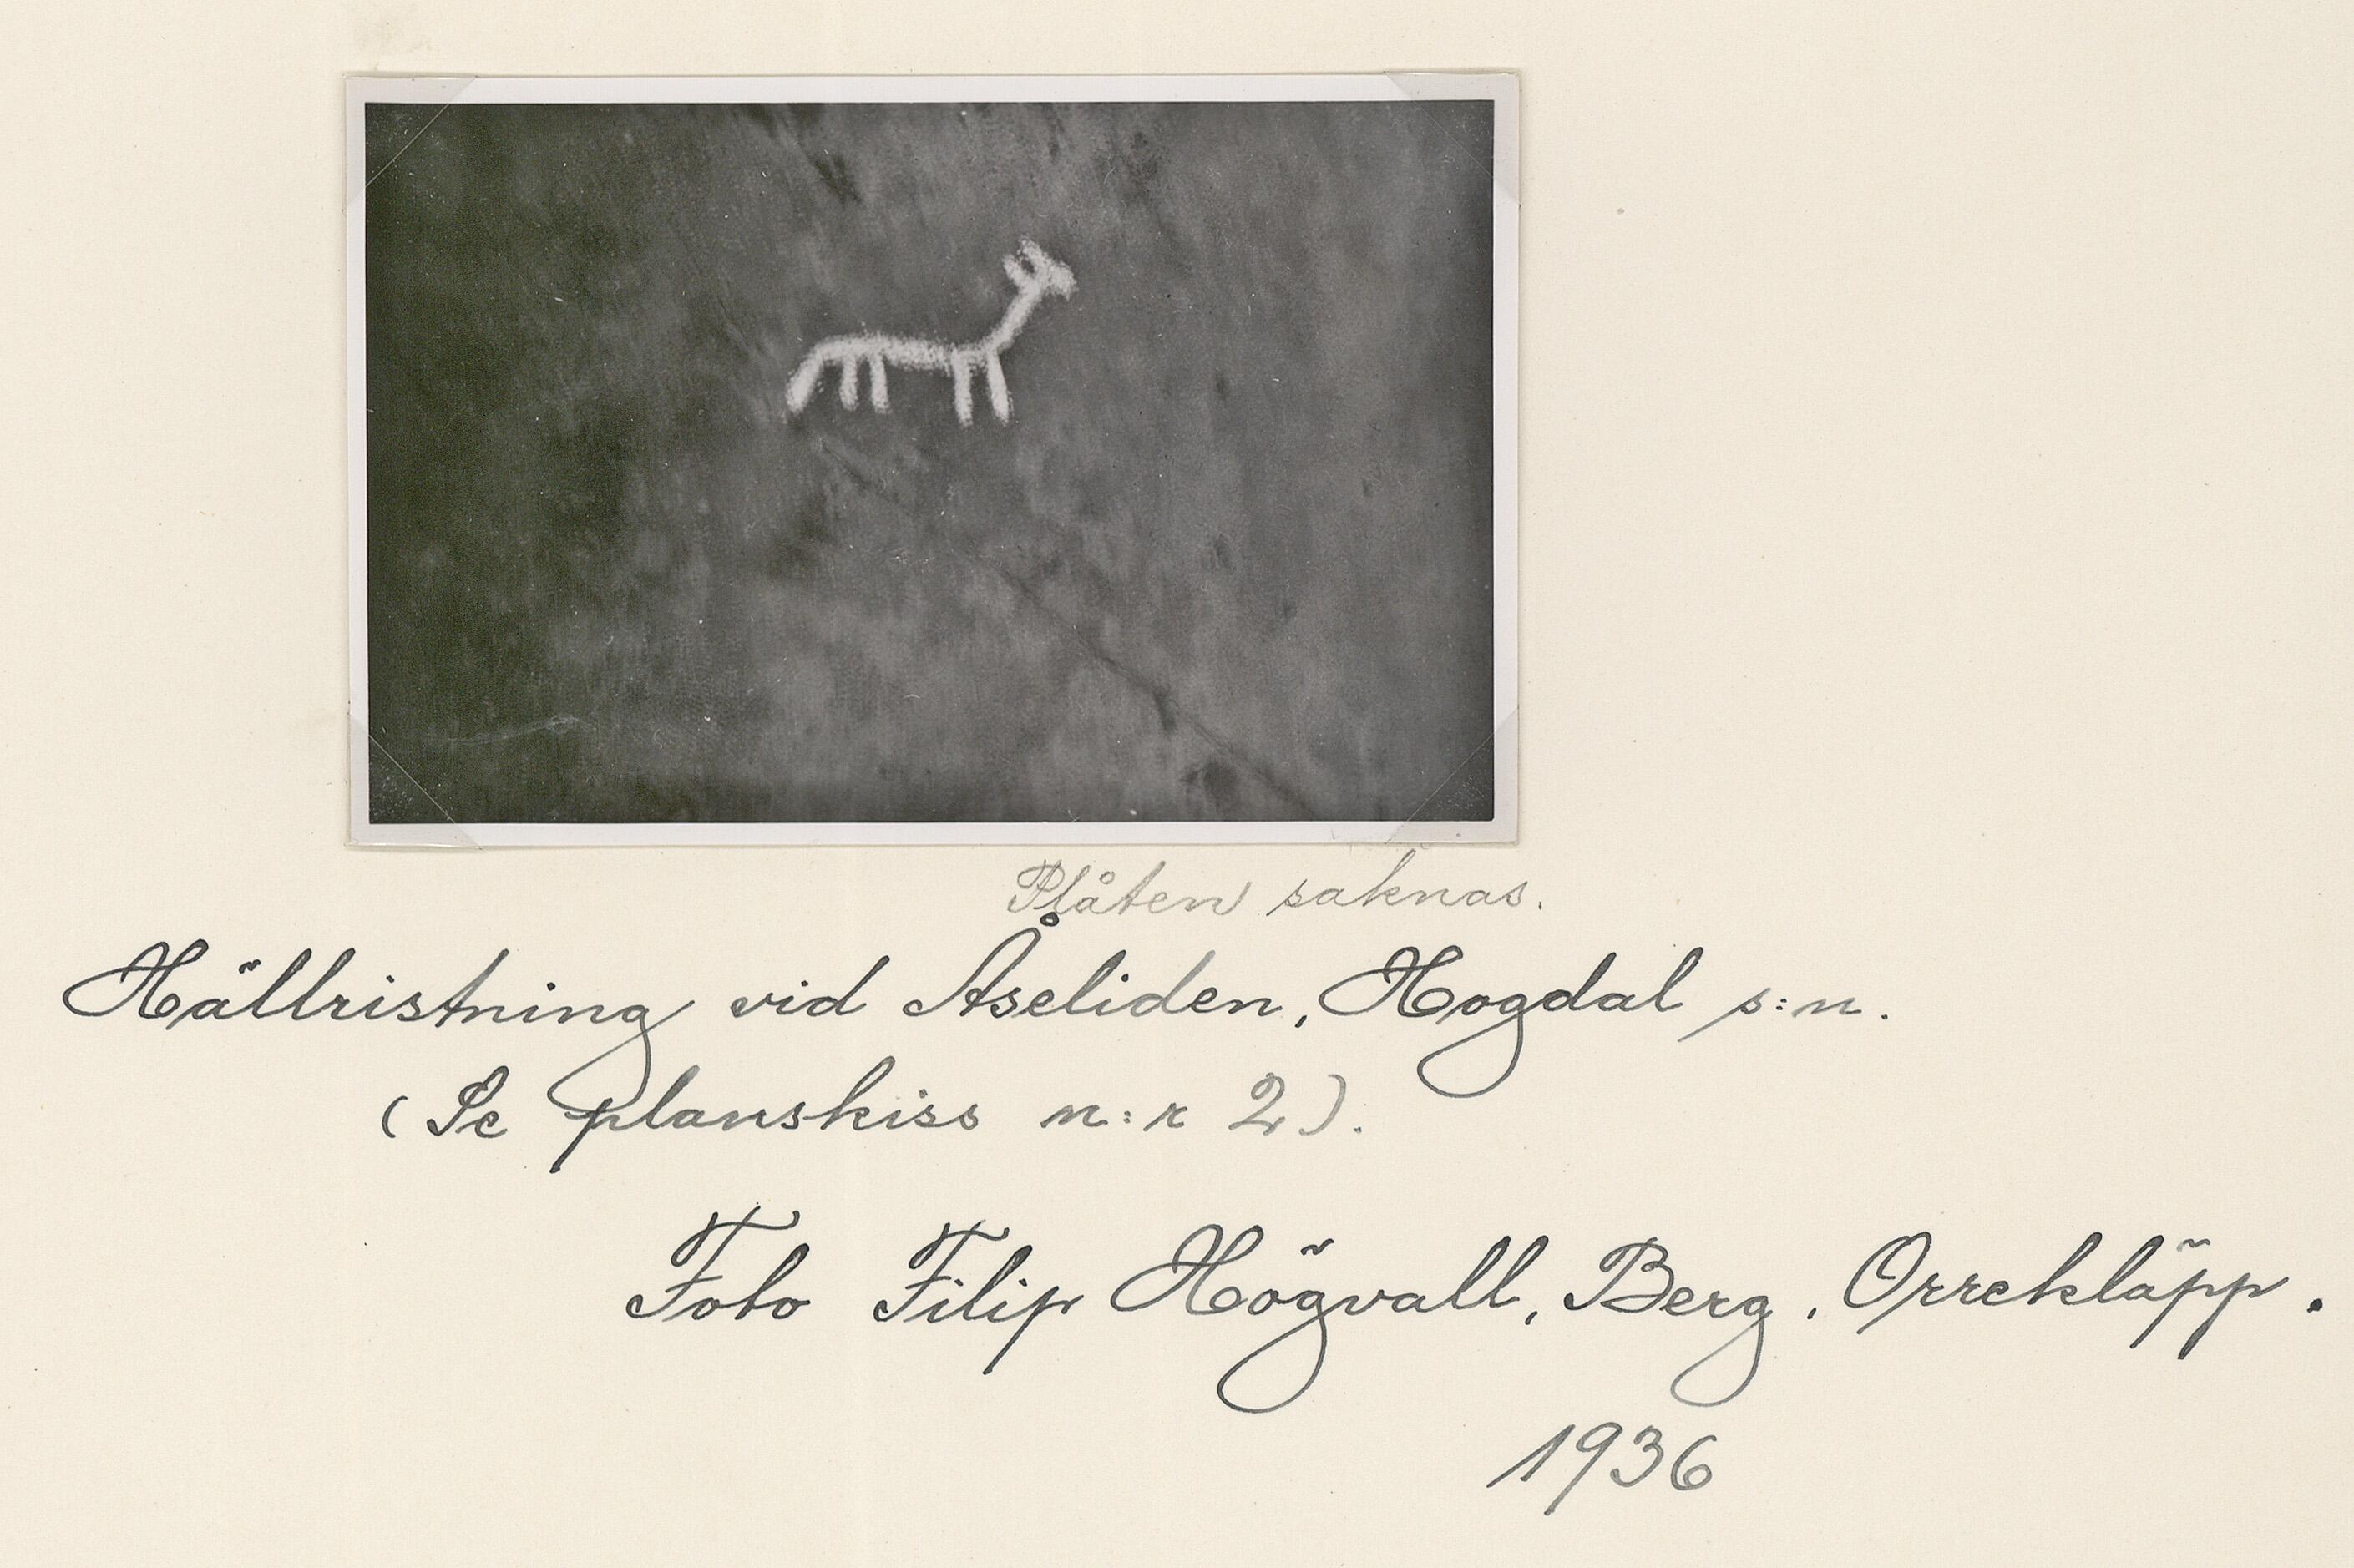 Plåten saknas.
Hällristning vid Åseliden, Hogdal s:n.
(Se planskiss n:r 2).
Foto Filip Högvall, Berg, Orrekläpp.
1936